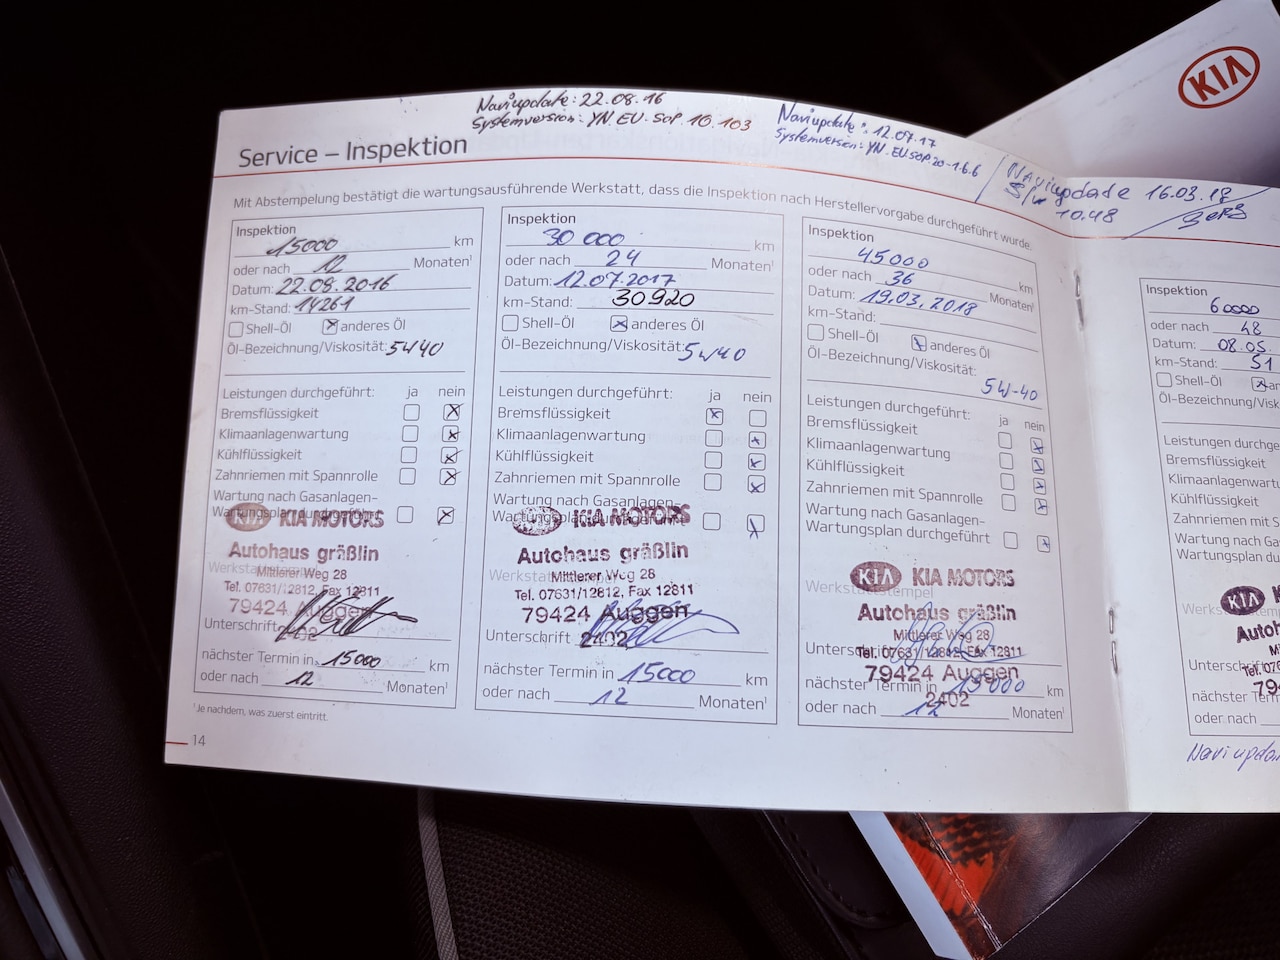 KIA
Naviupdate: 22.08.16
Systemversion: YN.EU.SOP 10.103
Naviupdate: 12.07.17
Systemversion: YN.EU.SOP20-1.6.6
Naviupdate 16.03.18
S/W 10.48
Service – Inspektion
Mit Abstempelung bestätigt die wartungsausführende Werkstatt, dass die Inspektion nach Herstellervorgabe durchgeführt wurde.
Inspektion
15000 km
oder nach 12 Monaten¹
Datum: 22.08.2016
km-Stand: 14261
Shell-Öl anderes Öl
Öl-Bezeichnung/Viskosität: 5W40
Leistungen durchgeführt: ja nein
Bremsflüssigkeit
Klimaanlagenwartung
Kühlflüssigkeit
Zahnriemen mit Spannrolle
Wartung nach Gasanlagen-
Wartungsplan durchgeführt
KIA KIA MOTORS
Autohaus gräßlin
Mittlerer Weg 28
Tel. 07631/12812, Fax 12811
79424 Auggen
Unterschrift 2402
nächster Termin in 15000 km
oder nach 12 Monaten¹
¹Je nachdem, was zuerst eintritt.
14
Inspektion
30 000 km
oder nach 24 Monaten¹
Datum: 12.07.2017
km-Stand: 30920
Shell-Öl anderes Öl
Öl-Bezeichnung/Viskosität: 5W40
Leistungen durchgeführt: ja nein
Bremsflüssigkeit
Klimaanlagenwartung
Kühlflüssigkeit
Zahnriemen mit Spannrolle
Wartung nach Gasanlagen-
Wartungsplan durchgeführt
KIA MOTORS
Autohaus gräßlin
Werkstattstempel
Mittlerer Weg 28
Tel. 07631/12812, Fax 12811
79424 Auggen
Unterschrift 2402
nächster Termin in 15000 km
oder nach 12 Monaten¹
Inspektion
45000 km
oder nach 36 Monaten¹
Datum: 19.03.2018
km-Stand:
Shell-Öl anderes Öl
Öl-Bezeichnung/Viskosität:
5W-40
Leistungen durchgeführt: ja nein
Bremsflüssigkeit
Klimaanlagenwartung
Kühlflüssigkeit
Zahnriemen mit Spannrolle
Wartung nach Gasanlagen-
Wartungsplan durchgeführt
KIA KIA MOTORS
Werkstattstempel
Autohaus gräßlin
Mittlerer Weg 28
Tel. 07631/12812, Fax 12811
79424 Auggen
nächster Termin in 15000 km
2402
oder nach 12 Monaten¹
Inspektion
60000
oder nach 48
Datum: 08.05.
km-Stand: 51
Shell-Öl an
Öl-Bezeichnung/Visk
Leistungen durchge
Bremsflüssigkeit
Klimaanlagenwartu
Kühlflüssigkeit
Zahnriemen mit Sp
Wartung nach Gasa
Wartungsplan du
KIA
Autoh
Tel. 076
Unterschrift
79
nächster Term
oder nach
Naviupda